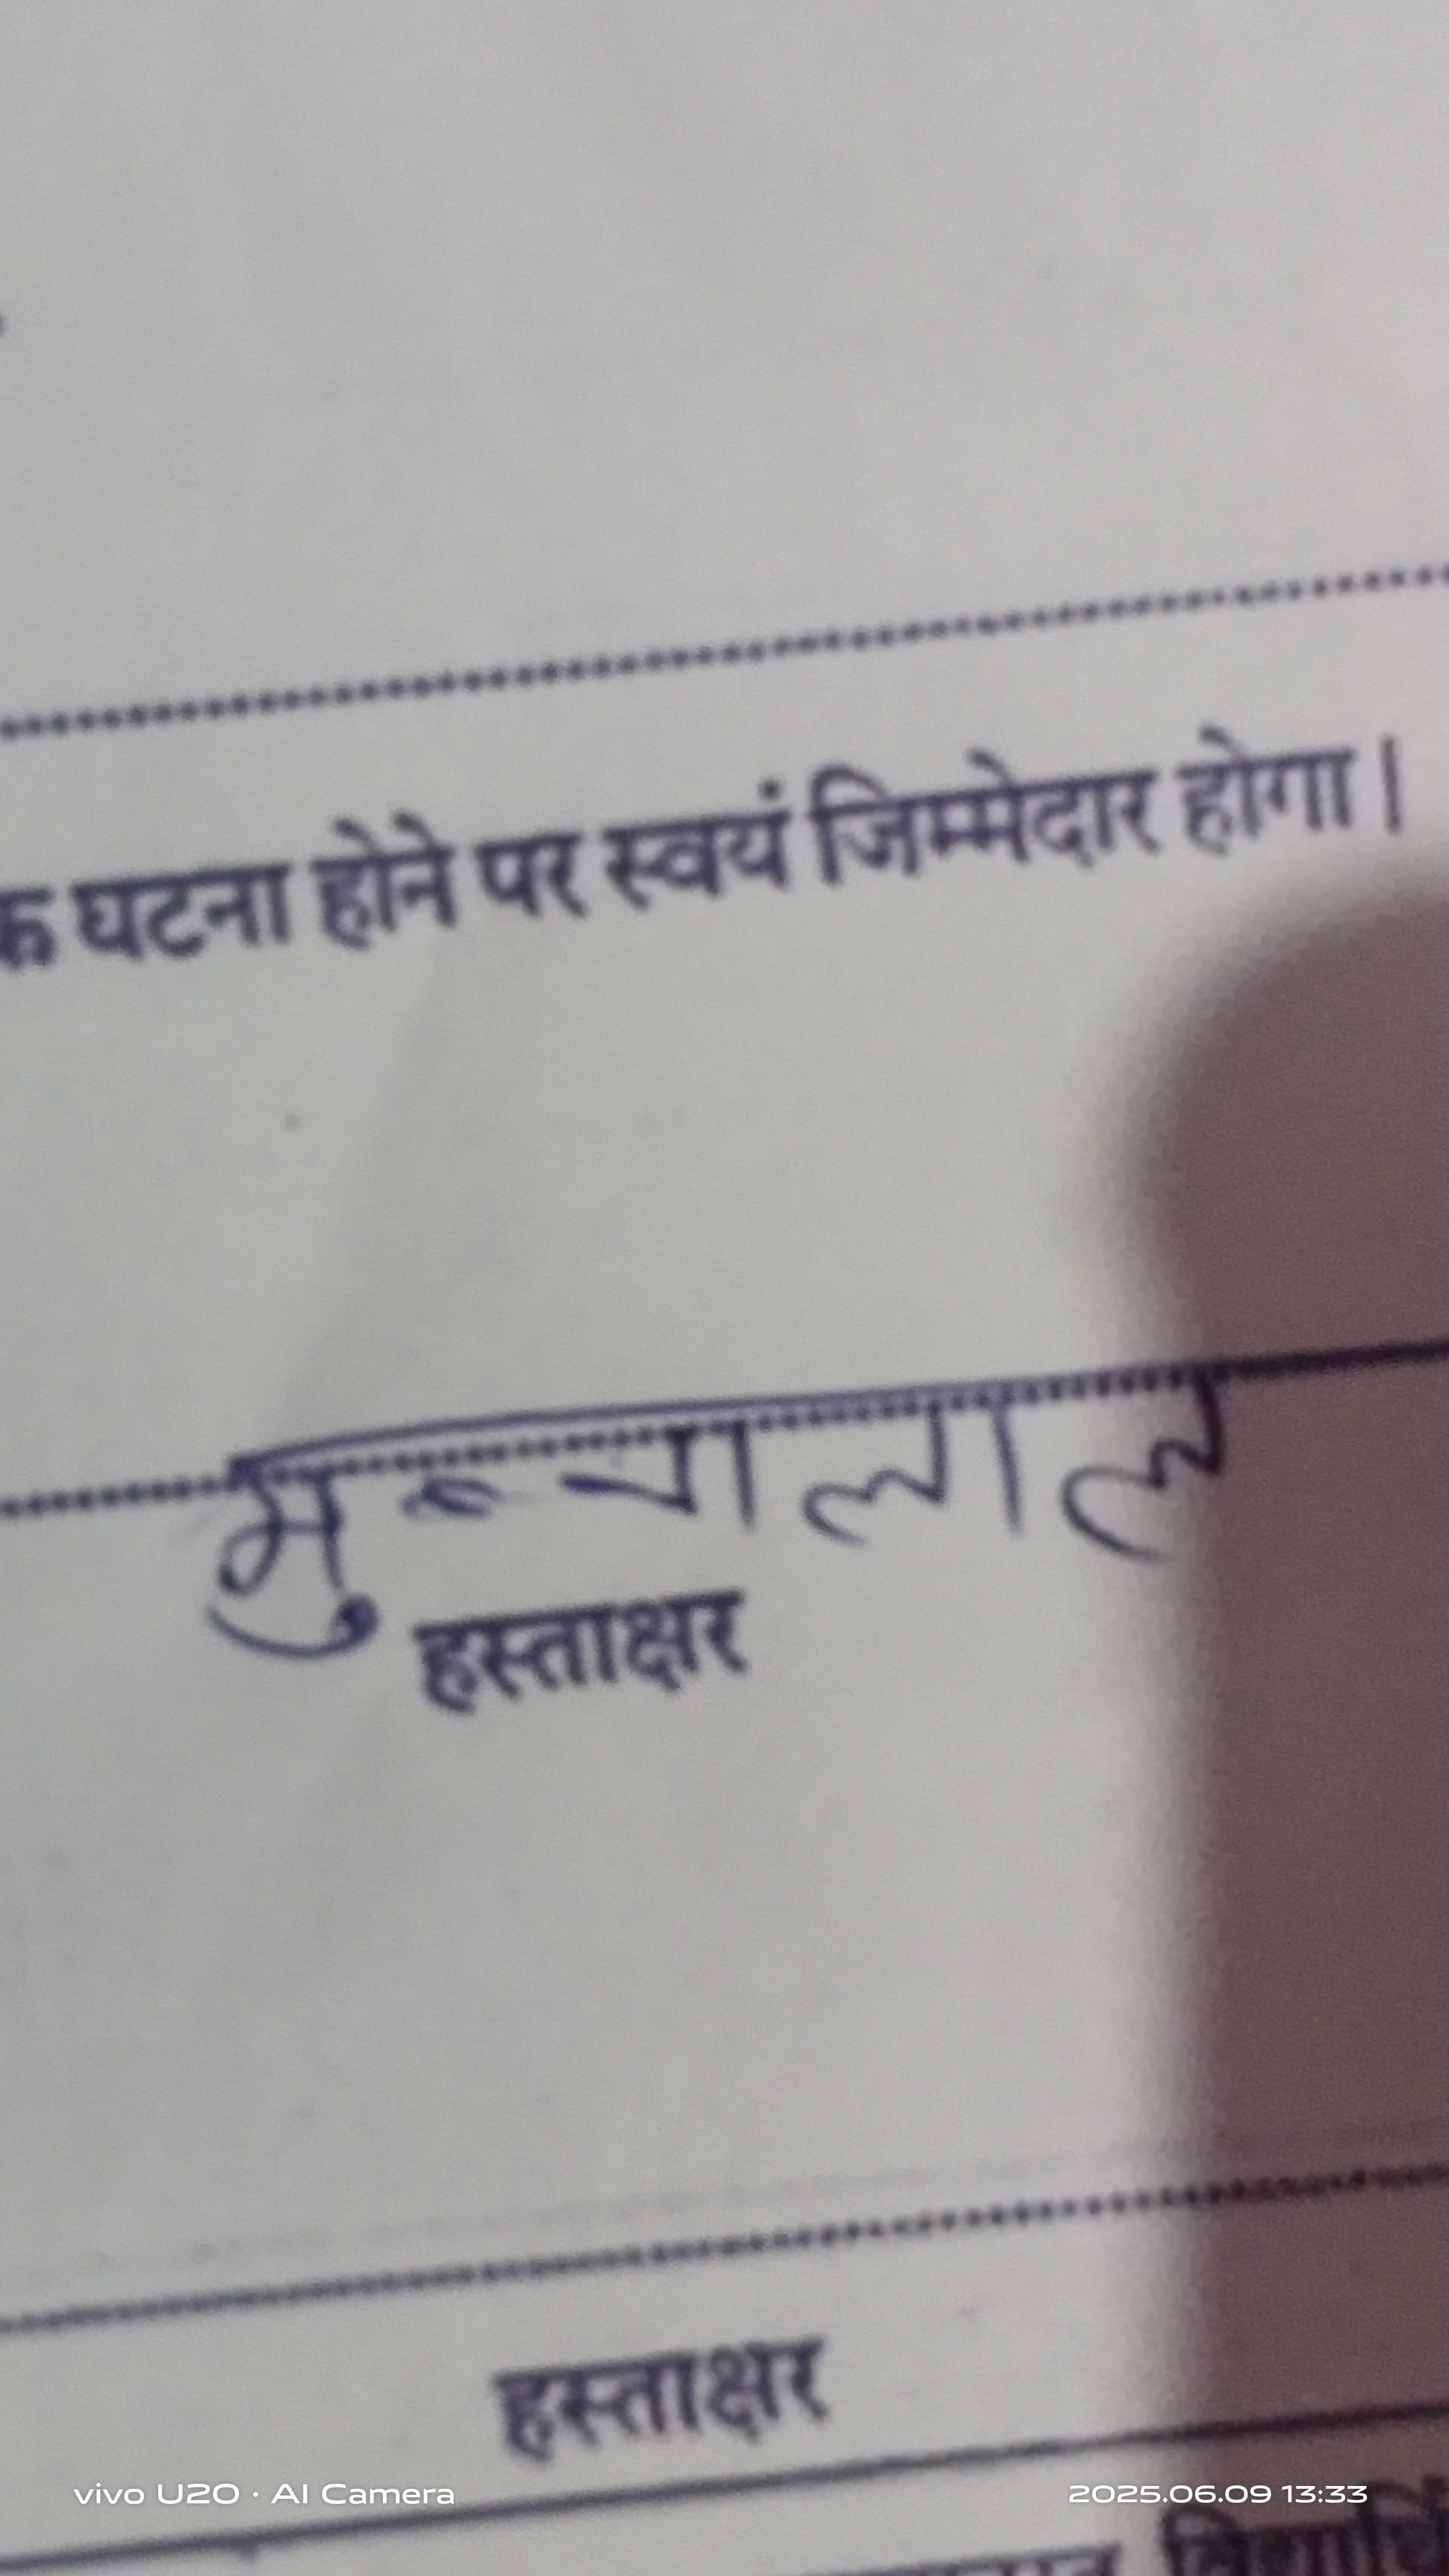 घटना होने पर स्वयं जिम्मेदार होगा।
मुन्नालाल
हस्ताक्षर
हस्ताक्षर
vivo U20 · AI Camera
2025.06.09 13:33